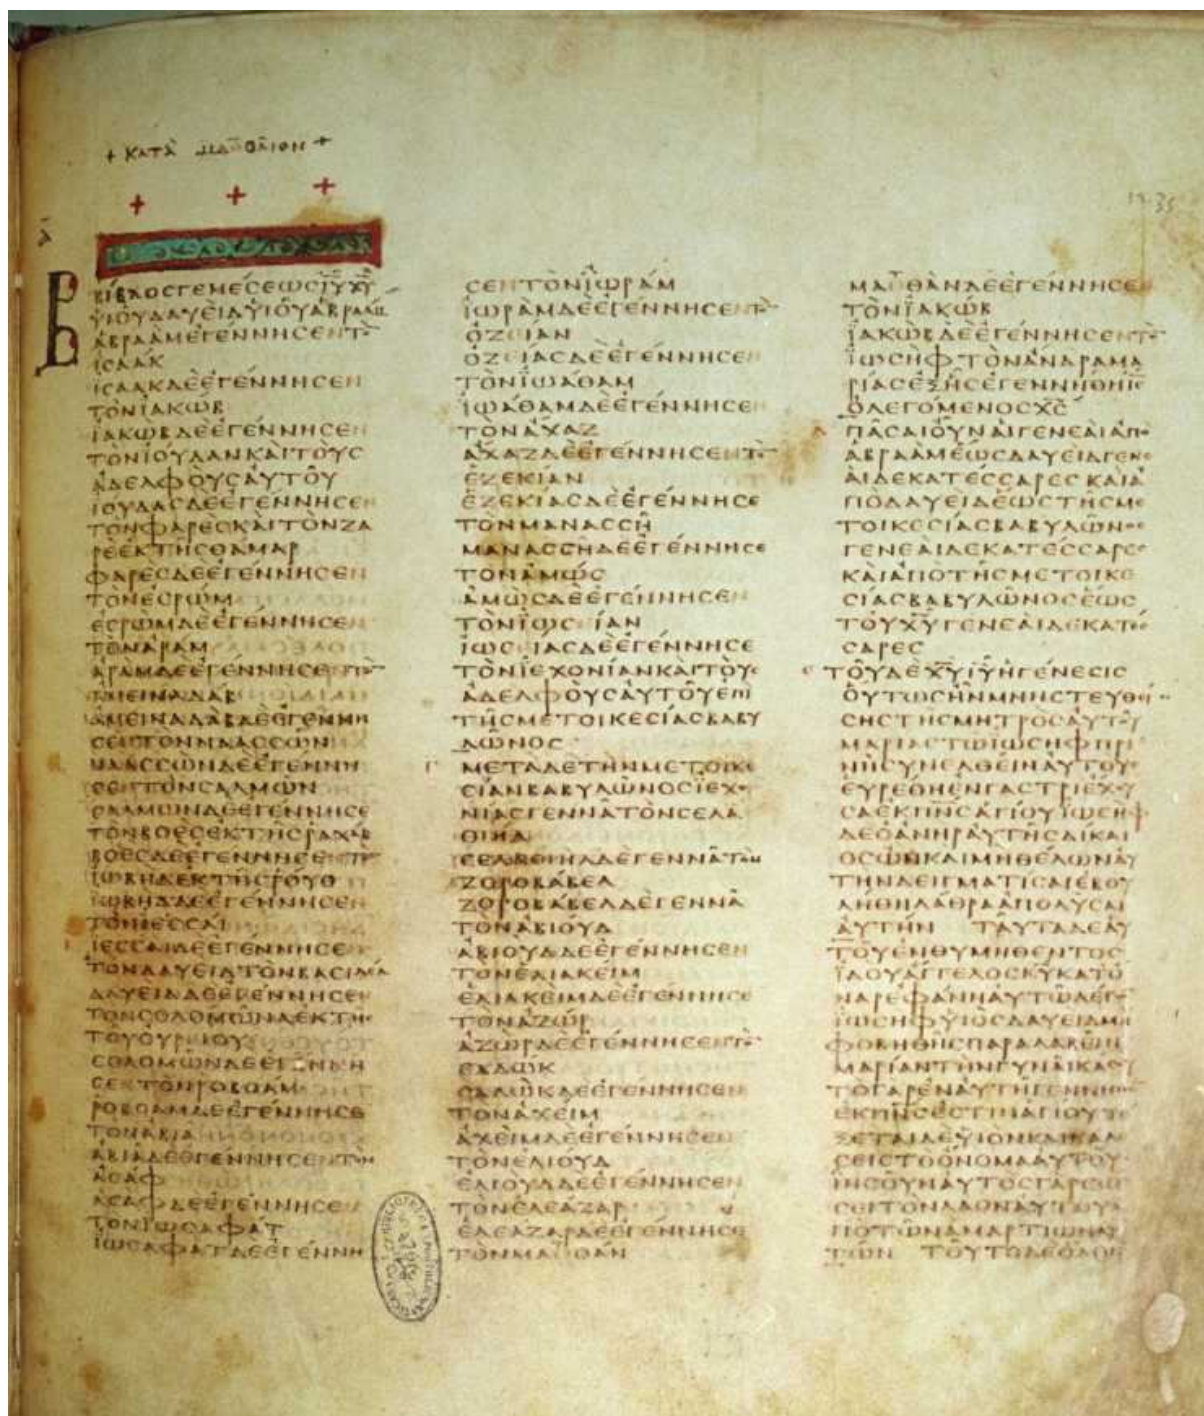 + ΚΑΤᾺ ΜΑΘΘΑΙΟΝ +
ΒΙΒΛΟΣΓΕΝΕΣΕΩΣΙΥΧΥ
ΥΙΟΥΔΑΥΕΙΔΥΙΟΥΑΒΡΑΑΜ
ΑΒΡΑΑΜΕΓΕΝΝΗΣΕΝΤΟ
ΙΣΑΑΚ
ΙΣΑΑΚΔΕΕΓΕΝΝΗΣΕΝ
ΤΟΝΙΑΚΩΒ
ΙΑΚΩΒΔΕΕΓΕΝΝΗΣΕΝ
ΤΟΝΙΟΥΔΑΝΚΑΙΤΟΥΣ
ΑΔΕΛΦΟΥΣΑΥΤΟΥ
ΙΟΥΔΑΣΔΕΕΓΕΝΝΗΣΕΝ
ΤΟΝΦΑΡΕΣΚΑΙΤΟΝΖΑ
ΡΕΕΚΤΗΣΘΑΜΑΡ
ΦΑΡΕΣΔΕΕΓΕΝΝΗΣΕΝ
ΤΟΝΕΣΡΩΜ
ΕΣΡΩΜΔΕΕΓΕΝΝΗΣΕΝ
ΤΟΝΑΡΑΜ
ΑΡΑΜΔΕΕΓΕΝΝΗΣΕΝΤΟΝ
ΑΜΕΙΝΑΔΑΒ
ΑΜΕΙΝΑΔΑΒΔΕΕΓΕΝΝΗ
ΣΕΝΤΟΝΝΑΑΣΣΩΝ
ΝΑΑΣΣΩΝΔΕΕΓΕΝΝΗ
ΣΕΝΤΟΝΣΑΛΜΩΝ
ΣΑΛΜΩΝΔΕΕΓΕΝΝΗΣΕ
ΤΟΝΒΟΕΣΕΚΤΗΣΡΑΧΑΒ
ΒΟΕΣΔΕΕΓΕΝΝΗΣΕΝΤΟΝ
ΙΩΒΗΔΕΚΤΗΣΡΟΥΘ
ΙΩΒΗΔΔΕΕΓΕΝΝΗΣΕΝ
ΤΟΝΙΕΣΣΑΙ
ΙΕΣΣΑΙΔΕΕΓΕΝΝΗΣΕΝ
ΤΟΝΔΑΥΕΙΔΤΟΝΒΑΣΙΛΕΑ
ΔΑΥΕΙΔΔΕΕΓΕΝΝΗΣΕΝ
ΤΟΝΣΟΛΟΜΩΝΑΕΚΤΗΣ
ΤΟΥΟΥΡΙΟΥ
ΣΟΛΟΜΩΝΔΕΕΓΕΝΝΗ
ΣΕΝΤΟΝΡΟΒΟΑΜ
ΡΟΒΟΑΜΔΕΕΓΕΝΝΗΣΕ
ΤΟΝΑΒΙΑ
ΑΒΙΑΔΕΕΓΕΝΝΗΣΕΝΤΟΝ
ΑΣΑΦ
ΑΣΑΦΔΕΕΓΕΝΝΗΣΕΝ
ΤΟΝΙΩΣΑΦΑΤ
ΙΩΣΑΦΑΤΔΕΕΓΕΝΝΗ
ΣΕΝΤΟΝΙΩΡΑΜ
ΙΩΡΑΜΔΕΕΓΕΝΝΗΣΕΝΤΟ
ΟΖΕΙΑΝ
ΟΖΕΙΑΣΔΕΕΓΕΝΝΗΣΕΝ
ΤΟΝΙΩΑΘΑΜ
ΙΩΑΘΑΜΔΕΕΓΕΝΝΗΣΕ
ΤΟΝΑΧΑΖ
ΑΧΑΖΔΕΕΓΕΝΝΗΣΕΝΤΟ
ΕΖΕΚΙΑΝ
ΕΖΕΚΙΑΣΔΕΕΓΕΝΝΗΣΕ
ΤΟΝΜΑΝΑΣΣΗ
ΜΑΝΑΣΣΗΔΕΕΓΕΝΝΗΣΕ
ΤΟΝΑΜΩΣ
ΑΜΩΣΔΕΕΓΕΝΝΗΣΕΝ
ΤΟΝΙΩΣΕΙΑΝ
ΙΩΣΕΙΑΣΔΕΕΓΕΝΝΗΣΕ
ΤΟΝΙΕΧΟΝΙΑΝΚΑΙΤΟΥΣ
ΑΔΕΛΦΟΥΣΑΥΤΟΥΕΠΙ
ΤΗΣΜΕΤΟΙΚΕΣΙΑΣΒΑΒΥ
ΛΩΝΟΣ
ΜΕΤΑΔΕΤΗΝΜΕΤΟΙΚΕ
ΣΙΑΝΒΑΒΥΛΩΝΟΣΙΕΧΟ
ΝΙΑΣΓΕΝΝΑΤΟΝΣΕΛΑ
ΘΙΗΛ
ΣΕΛΑΘΙΗΛΔΕΓΕΝΝΑΤΟΝ
ΖΟΡΟΒΑΒΕΛ
ΖΟΡΟΒΑΒΕΛΔΕΓΕΝΝΑ
ΤΟΝΑΒΙΟΥΔ
ΑΒΙΟΥΔΔΕΕΓΕΝΝΗΣΕΝ
ΤΟΝΕΛΙΑΚΕΙΜ
ΕΛΙΑΚΕΙΜΔΕΕΓΕΝΝΗΣΕ
ΤΟΝΑΖΩΡ
ΑΖΩΡΔΕΕΓΕΝΝΗΣΕΝΤΟ
ΣΑΔΩΚ
ΣΑΔΩΚΔΕΕΓΕΝΝΗΣΕΝ
ΤΟΝΑΧΕΙΜ
ΑΧΕΙΜΔΕΕΓΕΝΝΗΣΕΝ
ΤΟΝΕΛΙΟΥΔ
ΕΛΙΟΥΔΔΕΕΓΕΝΝΗΣΕΝ
ΤΟΝΕΛΕΑΖΑΡ
ΕΛΕΑΖΑΡΔΕΕΓΕΝΝΗΣΕ
ΤΟΝΜΑΘΘΑΝ
ΜΑΘΘΑΝΔΕΕΓΕΝΝΗΣΕΝ
ΤΟΝΙΑΚΩΒ
ΙΑΚΩΒΔΕΕΓΕΝΝΗΣΕΝΤΟ
ΙΩΣΗΦΤΟΝΑΝΔΡΑΜΑ
ΡΙΑΣΕΞΗΣΕΓΕΝΝΗΘΗΙΣ
ΟΛΕΓΟΜΕΝΟΣΧΣ
ΠΑΣΑΙΟΥΝΑΙΓΕΝΕΑΙΑΠΟ
ΑΒΡΑΑΜΕΩΣΔΑΥΕΙΔΓΕΝΕ
ΑΙΔΕΚΑΤΕΣΣΑΡΕΣΚΑΙΑ
ΠΟΔΑΥΕΙΔΕΩΣΤΗΣΜΕ
ΤΟΙΚΕΣΙΑΣΒΑΒΥΛΩΝΟΣ
ΓΕΝΕΑΙΔΕΚΑΤΕΣΣΑΡΕΣ
ΚΑΙΑΠΟΤΗΣΜΕΤΟΙΚΕ
ΣΙΑΣΒΑΒΥΛΩΝΟΣΕΩΣ
ΤΟΥΧΥΓΕΝΕΑΙΔΕΚΑΤΕΣ
ΣΑΡΕΣ
ΤΟΥΔΕΧΥΙΥΗΓΕΝΕΣΙΣ
ΟΥΤΩΣΗΝΜΝΗΣΤΕΥΘΕΙ
ΣΗΣΤΗΣΜΗΤΡΟΣΑΥΤΟΥ
ΜΑΡΙΑΣΤΩΙΩΣΗΦΠΡΙ
ΝΗΣΥΝΕΛΘΕΙΝΑΥΤΟΥΣ
ΕΥΡΕΘΗΕΝΓΑΣΤΡΙΕΧΟΥ
ΣΑΕΚΠΝΣΑΓΙΟΥΙΩΣΗΦ
ΔΕΟΑΝΗΡΑΥΤΗΣΔΙΚΑΙ
ΟΣΩΝΚΑΙΜΗΘΕΛΩΝΑΥ
ΤΗΝΔΕΙΓΜΑΤΙΣΑΙΕΒΟΥ
ΛΗΘΗΛΑΘΡΑΑΠΟΛΥΣΑΙ
ΑΥΤΗΝ ΤΑΥΤΑΔΕΑΥ
ΤΟΥΕΝΘΥΜΗΘΕΝΤΟΣ
ΙΔΟΥΑΓΓΕΛΟΣΚΥΚΑΤΟ
ΝΑΡΕΦΑΝΗΑΥΤΩΛΕΓΩ
ΙΩΣΗΦΥΙΟΣΔΑΥΕΙΔΜΗ
ΦΟΒΗΘΗΣΠΑΡΑΛΑΒΕΙΝ
ΜΑΡΙΑΝΤΗΝΓΥΝΑΙΚΑΣΟΥ
ΤΟΓΑΡΕΝΑΥΤΗΓΕΝΝΗΘΕΝ
ΕΚΠΝΣΕΣΤΙΝΑΓΙΟΥΤΕ
ΞΕΤΑΙΔΕΥΙΟΝΚΑΙΚΑΛΕ
ΣΕΙΣΤΟΟΝΟΜΑΑΥΤΟΥ
ΙΗΣΟΥΝΑΥΤΟΣΓΑΡΣΩ
ΣΕΙΤΟΝΛΑΟΝΑΥΤΟΥΑ
ΠΟΤΩΝΑΜΑΡΤΙΩΝΑΥ
ΤΩΝ ΤΟΥΤΟΔΕΟΛΟΝ